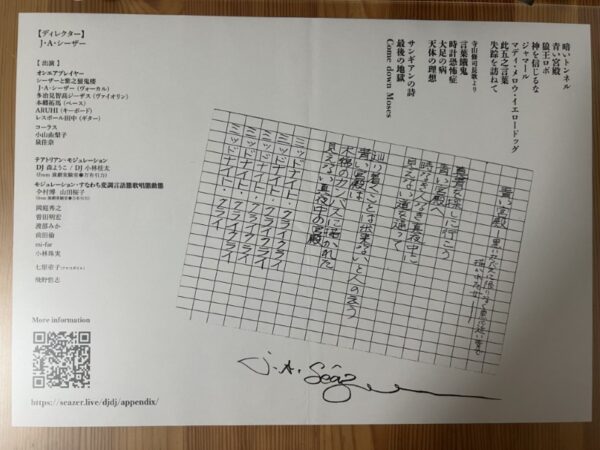 暗いトンネル
青い宮殿
狼王ロボ
神を信じるな
ジャマール
マディ・メロウ・イエロードッグ
此五之言葉
失踪を訪ねて
寺山修司長歌より
言葉餓鬼
時計恐怖症
大足の病
天体の理想
サンギアンの詩
最後の地獄
Come down Moses
【ディレクター】
J・A・シーザー
【出演】
オンエアプレイヤー
シーザーと紫之蜃鬼楼
J・A・シーザー(ヴォーカル)
多治見智高ジーザス(ヴァイオリン)
本郷拓馬(ベース)
ARUHI(キーボード)
レスポール田中(ギター)
コーラス
小山由梨子
泉佳奈
テアトリアン・モジュレーション
DJ 森ようこ / DJ 小林桂太
モジュレーション・すなわち変調言語態歌唱態動態
今村博 山田桜子
岡庭秀之
曽田明宏
渡部みか
前田倫
mi-far
小林珠実
七原幸子
飛野悠志
青い宮殿
青い宮殿へ
時なき人なき真夜中に
見えない道を通って
辿り着くことは出来ないと人の言う
青い宮殿は
見えない真夜中の宮殿
ミッドナイト・クライクライ
ミッドナイト・クライクライ
ミッドナイト・クライクライ
ミッドナイト・クライクライ
J.A.Seazer
More information
https://seazer.live/djdj/appendix/